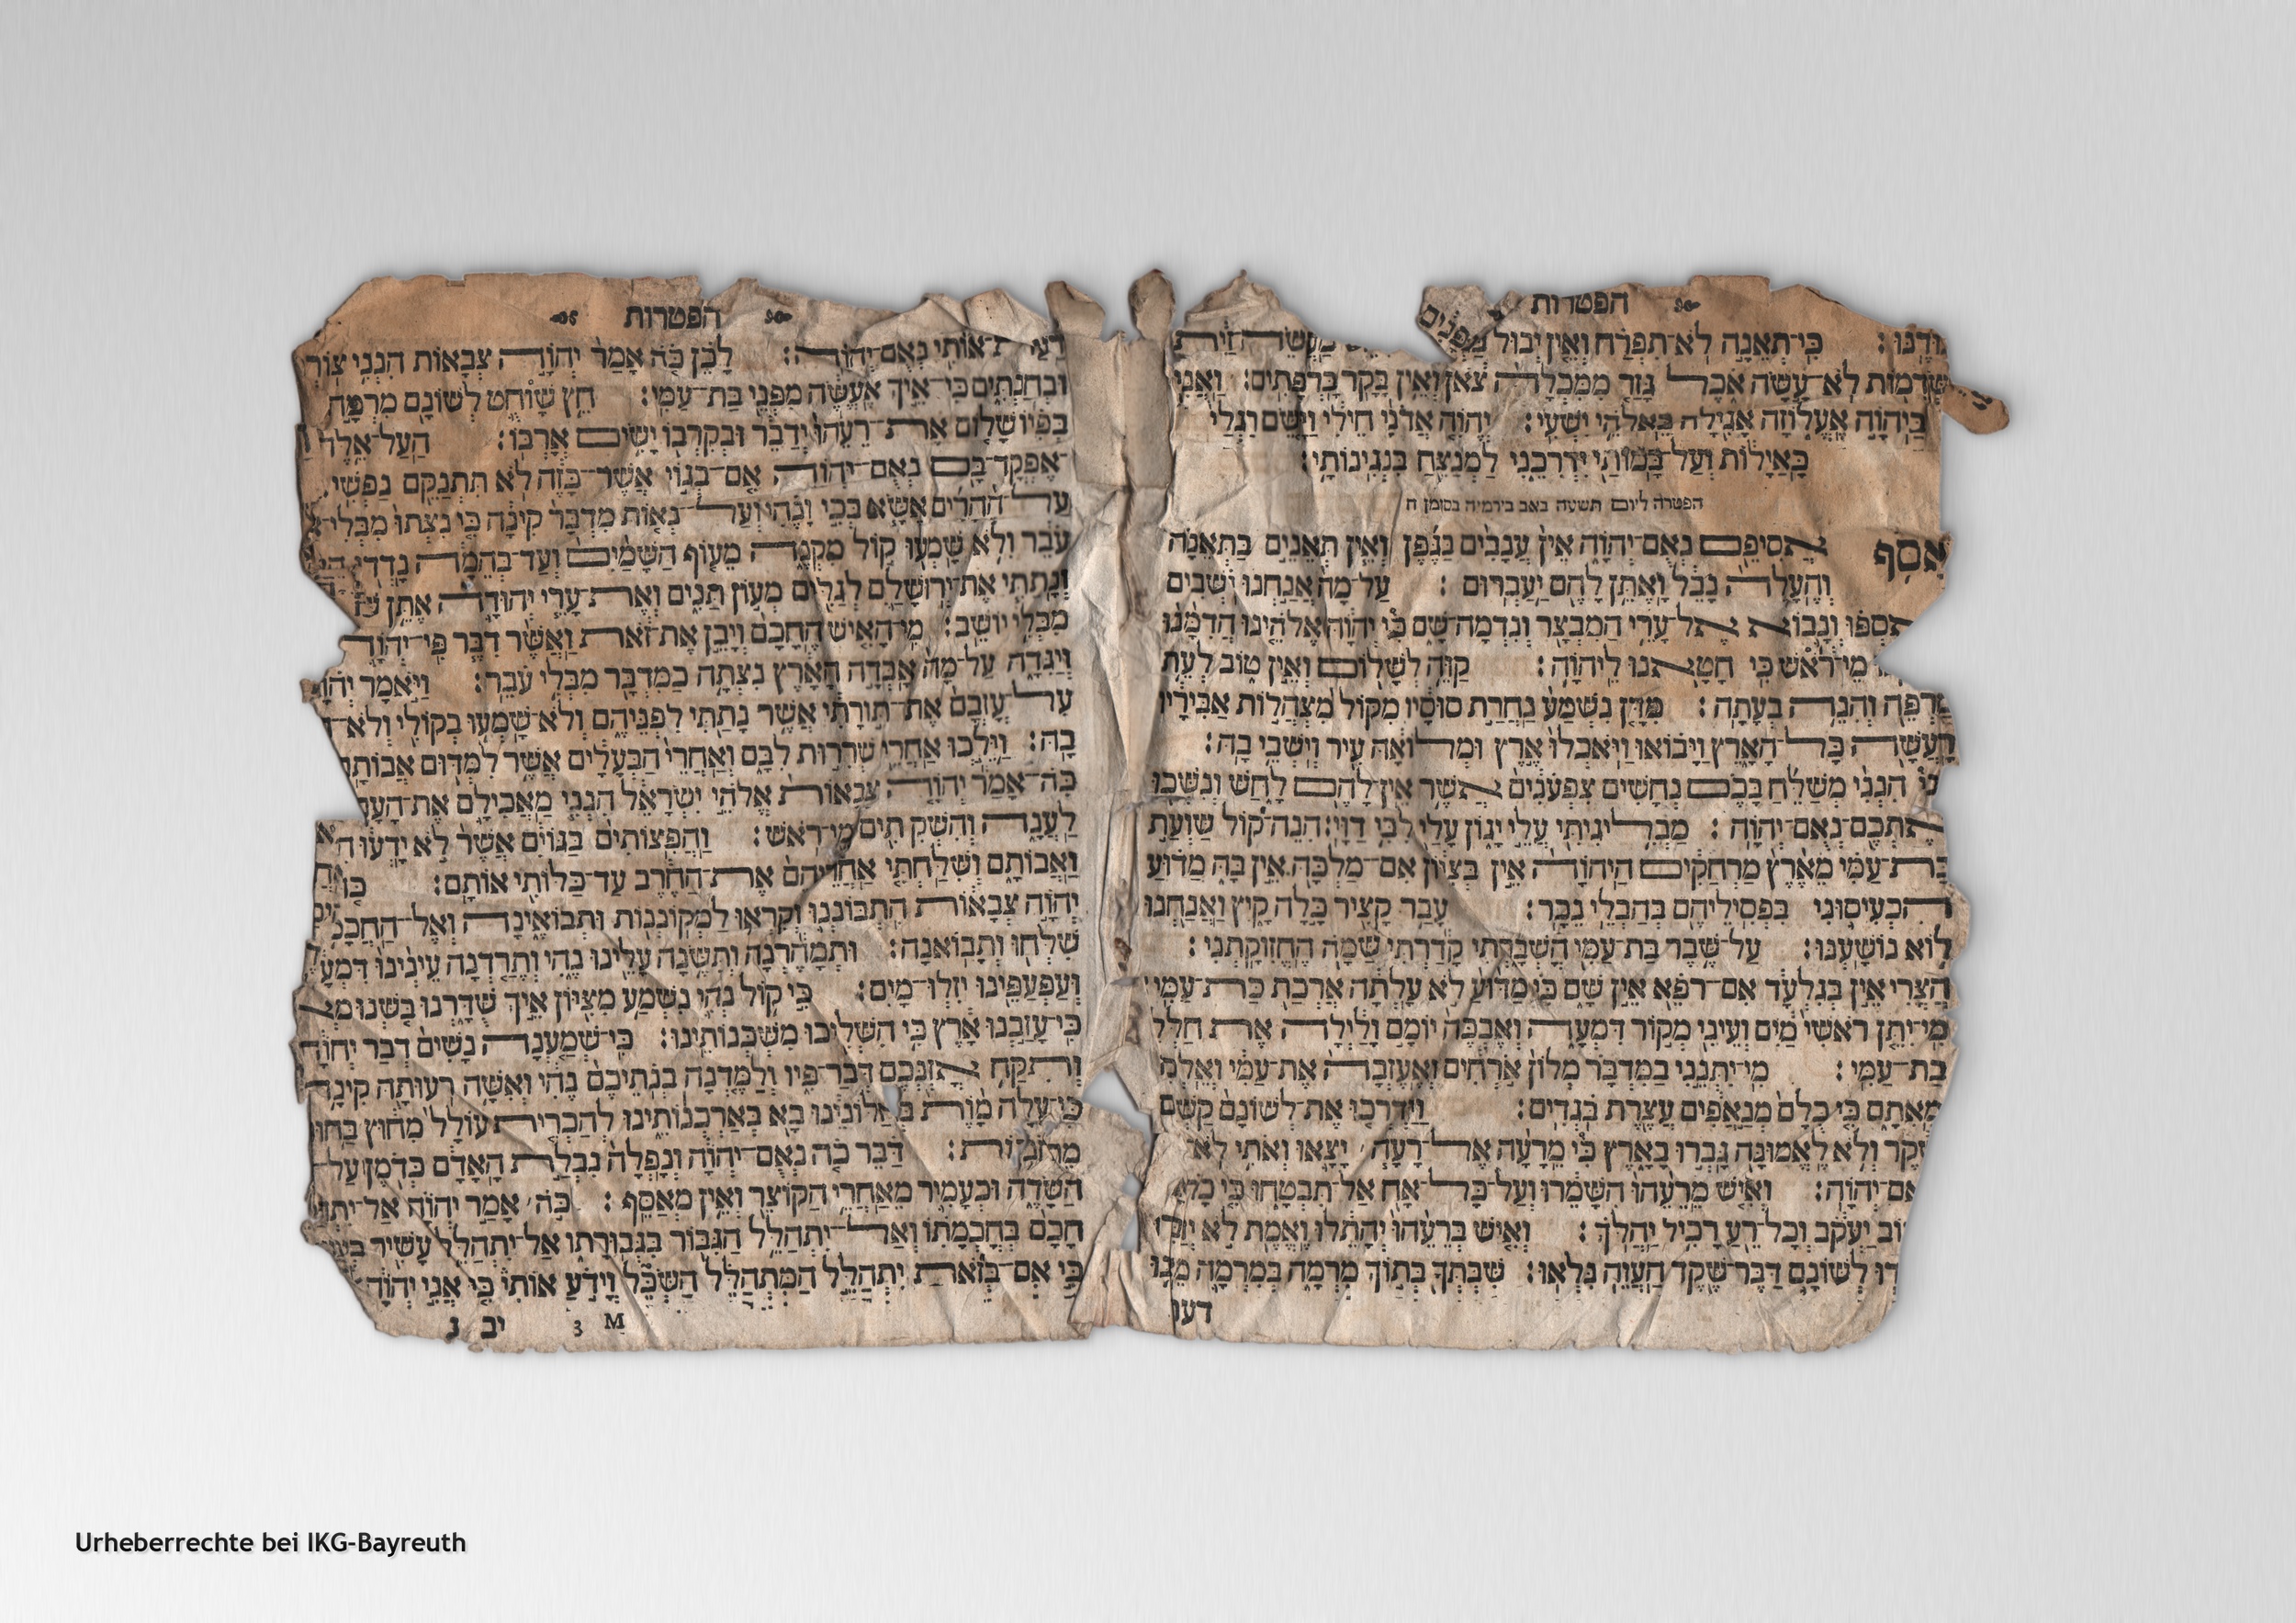 הפטרות
כִּי־תְאֵנָה לֹא־תִפְרָח וְאֵין יְבוּל
שְׁדֵמוֹת לֹא־עָשָׂה אֹכֶל גָּזַר מִמִּכְלָה צֹאן וְאֵין בָּקָר בָּרְפָתִים: וַאֲנִי
בַּיהוָֹה אֶעְלוֹזָה אָגִילָה בֵּאלֹהֵי יִשְׁעִי: יְהוִֹה אֲדֹנָי חֵילִי וַיָּשֶׂם רַגְלַי
כָּאַיָּלוֹת וְעַל בָּמוֹתַי יַדְרִכֵנִי לַמְנַצֵּחַ בִּנְגִינוֹתָי:
הפטרה ליום תשעה באב בירמיה בסומן ח
אָסֹף אֲסִיפֵם נְאֻם־יְהוָֹה אֵין עֲנָבִים בַּגֶּפֶן וְאֵין תְּאֵנִים בַּתְּאֵנָה
וְהֶעָלֶה נָבֵל וָאֶתֵּן לָהֶם יַעַבְרוּם: עַל־מָה אֲנַחְנוּ יֹשְׁבִים
וְנָבוֹא אֶל־עָרֵי הַמִּבְצָר וְנִדְּמָה־שָּׁם כִּי יְהוָֹה אֱלֹהֵינוּ הֲדִמָּנוּ
מֵי־רֹאשׁ כִּי חָטָאנוּ לַיהוָֹה: קַוֵּה לְשָׁלוֹם וְאֵין טוֹב לְעֵת
מַרְפֵּה וְהִנֵּה בְעָתָה: מִדָּן נִשְׁמַע נַחְרַת סוּסָיו מִקּוֹל מִצְהֲלוֹת אַבִּירָיו
רָעֲשָׁה כָּל־הָאָרֶץ וַיָּבוֹאוּ וַיֹּאכְלוּ אֶרֶץ וּמְלוֹאָהּ עִיר וְיֹשְׁבֵי בָהּ:
הִנְנִי מְשַׁלֵּחַ בָּכֶם נְחָשִׁים צִפְעֹנִים אֲשֶׁר אֵין־לָהֶם לָחַשׁ וְנִשְּׁכוּ
אֶתְכֶם נְאֻם־יְהוָֹה: מַבְלִיגִיתִי עֲלֵי יָגוֹן עָלַי לִבִּי דַוָּי: הִנֵּה־קוֹל שַׁוְעַת
בַּת־עַמִּי מֵאֶרֶץ מַרְחַקִּים הַיהוָֹה אֵין בְּצִיּוֹן אִם־מַלְכָּהּ אֵין בָּהּ מַדּוּעַ
הִכְעִיסוּנִי בִּפְסִילֵיהֶם בְּהַבְלֵי נֵכָר: עָבַר קָצִיר כָּלָה קָיִץ וַאֲנַחְנוּ
לוֹא נוֹשָׁעְנוּ: עַל־שֶׁבֶר בַּת־עַמִּי הָשְׁבָּרְתִּי קָדַרְתִּי שַׁמָּה הֶחֱזִקָתְנִי:
הַצֳרִי אֵין בְּגִלְעָד אִם־רֹפֵא אֵין שָׁם כִּי מַדּוּעַ לֹא עָלְתָה אֲרֻכַת בַּת־עַמִּי:
מִי־יִתֵּן רֹאשִׁי מַיִם וְעֵינִי מְקוֹר דִּמְעָה וְאֶבְכֶּה יוֹמָם וָלַיְלָה אֵת חַלְלֵי
בַת־עַמִּי: מִי־יִתְּנֵנִי בַמִּדְבָּר מְלוֹן אֹרְחִים וְאֶעֶזְבָה אֶת־עַמִּי וְאֵלְכָה
מֵאִתָּם כִּי כֻלָּם מְנָאֲפִים עֲצֶרֶת בֹּגְדִים: וַיַּדְרְכוּ אֶת־לְשׁוֹנָם קַשְׁתָּם
שֶׁקֶר וְלֹא לֶאֱמוּנָה גָּבְרוּ בָאָרֶץ כִּי מֵרָעָה אֶל־רָעָה יָצָאוּ וְאֹתִי לֹא
נְאֻם־יְהוָֹה: וְאִישׁ מֵרֵעֵהוּ הִשָּׁמֵרוּ וְעַל־כָּל־אָח אַל־תִּבְטָחוּ כִּי כָל
יַעְקֹב וְכָל־רֵעַ רָכִיל יַהֲלֹךְ: וְאִישׁ בְּרֵעֵהוּ יְהָתֵלּוּ וֶאֱמֶת לֹא
לְשׁוֹנָם דַּבֶּר־שֶׁקֶר הַעֲוֵה נִלְאוּ: שִׁבְתְּךָ בְּתוֹךְ מִרְמָה בְּמִרְמָה מֵאֲנוּ
דעת
הפטרות
דַעַת־אוֹתִי נְאֻם־יְהוָֹה: לָכֵן כֹּה אָמַר יְהוָֹה צְבָאוֹת הִנְנִי צוֹרְ
וּבְחַנְתִּים כִּי־אֵיךְ אֶעֱשֶׂה מִפְּנֵי בַּת־עַמִּי: חֵץ שׁוֹחֵט לְשׁוֹנָם מִרְמָה
בְּפִיו שָׁלוֹם אֶת־רֵעֵהוּ יְדַבֵּר וּבְקִרְבּוֹ יָשִׂים אָרְבּוֹ: הַעַל־אֵלֶּה
אֶפְקָד־בָּם נְאֻם־יְהוָֹה אִם־בְּגוֹי אֲשֶׁר־כָּזֶה לֹא תִתְנַקֵּם נַפְשִׁי:
עַל־הֶהָרִים אֶשָּׂא בְכִי וָנֶהִי וְעַל־נְאוֹת מִדְבָּר קִינָה כִּי נִצְּתוּ מִבְּלִי־
עֹבֵר וְלֹא שָׁמְעוּ קוֹל מִקְנֶה מֵעוֹף הַשָּׁמַיִם וְעַד־בְּהֵמָה נָדְדוּ
וְנָתַתִּי אֶת־יְרוּשָׁלִַם לְגַלִּים מְעוֹן תַּנִּים וְאֶת־עָרֵי יְהוּדָה אֶתֵּן
מִבְּלִי יוֹשֵׁב: מִי־הָאִישׁ הֶחָכָם וְיָבֵן אֶת־זֹאת וַאֲשֶׁר דִּבֶּר פִּי־יְהוָֹה
וְיַגִּדָהּ עַל־מָה אָבְדָה הָאָרֶץ נִצְּתָה כַמִּדְבָּר מִבְּלִי עֹבֵר: וַיֹּאמֶר יְהוָֹה
עַל־עָזְבָם אֶת־תּוֹרָתִי אֲשֶׁר נָתַתִּי לִפְנֵיהֶם וְלֹא־שָׁמְעוּ בְקוֹלִי וְלֹא־
בָהּ: וַיֵּלְכוּ אַחֲרֵי שְׁרִרוּת לִבָּם וְאַחֲרֵי הַבְּעָלִים אֲשֶׁר לִמְּדוּם אֲבוֹתָם
כֹּה־אָמַר יְהוָֹה צְבָאוֹת אֱלֹהֵי יִשְׂרָאֵל הִנְנִי מַאֲכִילָם אֶת־הָעָם
לַעֲנָה וְהִשְׁקִתִים מֵי־רֹאשׁ: וַהֲפִצוֹתִים בַּגּוֹיִם אֲשֶׁר לֹא יָדְעוּ
וַאֲבוֹתָם וְשִׁלַּחְתִּי אַחֲרֵיהֶם אֶת־הַחֶרֶב עַד־כַּלּוֹתִי אוֹתָם: כֹּה
יְהוָֹה צְבָאוֹת הִתְבּוֹנְנוּ וְקִרְאוּ לַמְקוֹנְנוֹת וּתְבוֹאֶינָה וְאֶל־הַחֲכָמ
שִׁלְחוּ וְתָבוֹאנָה: וּתְמַהֵרְנָה וְתִשֶּׂנָה עָלֵינוּ נֶהִי וְתֵרַדְנָה עֵינֵינוּ דִּמְעָה
וְעַפְעַפֵּינוּ יִזְּלוּ־מָיִם: כִּי קוֹל נְהִי נִשְׁמַע מִצִּיּוֹן אֵיךְ שֻׁדָּדְנוּ בֹּשְׁנוּ
כִּי־עָזַבְנוּ אָרֶץ כִּי הִשְׁלִיכוּ מִשְׁכְּנוֹתֵינוּ: כִּי־שְׁמַעְנָה נָשִׁים דְּבַר יְהוָֹה
וְתִקַּח אָזְנְכֶם דְּבַר־פִּיו וְלַמֵּדְנָה בְנֹתֵיכֶם נֶהִי וְאִשָּׁה רְעוּתָהּ קִינָה
כִּי־עָלָה מָוֶת בְּחַלּוֹנֵינוּ בָּא בְּאַרְמְנוֹתֵינוּ לְהַכְרִית עוֹלָל מִחוּץ
מֵרְחֹבוֹת: דַּבֵּר כֹּה נְאֻם־יְהוָֹה וְנָפְלָה נִבְלַת הָאָדָם כְּדֹמֶן עַל־
הַשָּׂדֶה וּכְעָמִיר מֵאַחֲרֵי הַקּוֹצֵר וְאֵין מְאַסֵּף: כֹּה אָמַר יְהוָֹה אַל־
חָכָם בְּחָכְמָתוֹ וְאַל־יִתְהַלֵּל הַגִּבּוֹר בִּגְבוּרָתוֹ אַל־יִתְהַלֵּל עָשִׁיר
כִּי אִם־בְּזֹאת יִתְהַלֵּל הַמִּתְהַלֵּל הַשְׂכֵּל וְיָדֹעַ אוֹתִי כִּי אֲנִי יְהוָֹה
יב נ 3 M
Urheberrechte bei IKG-Bayreuth